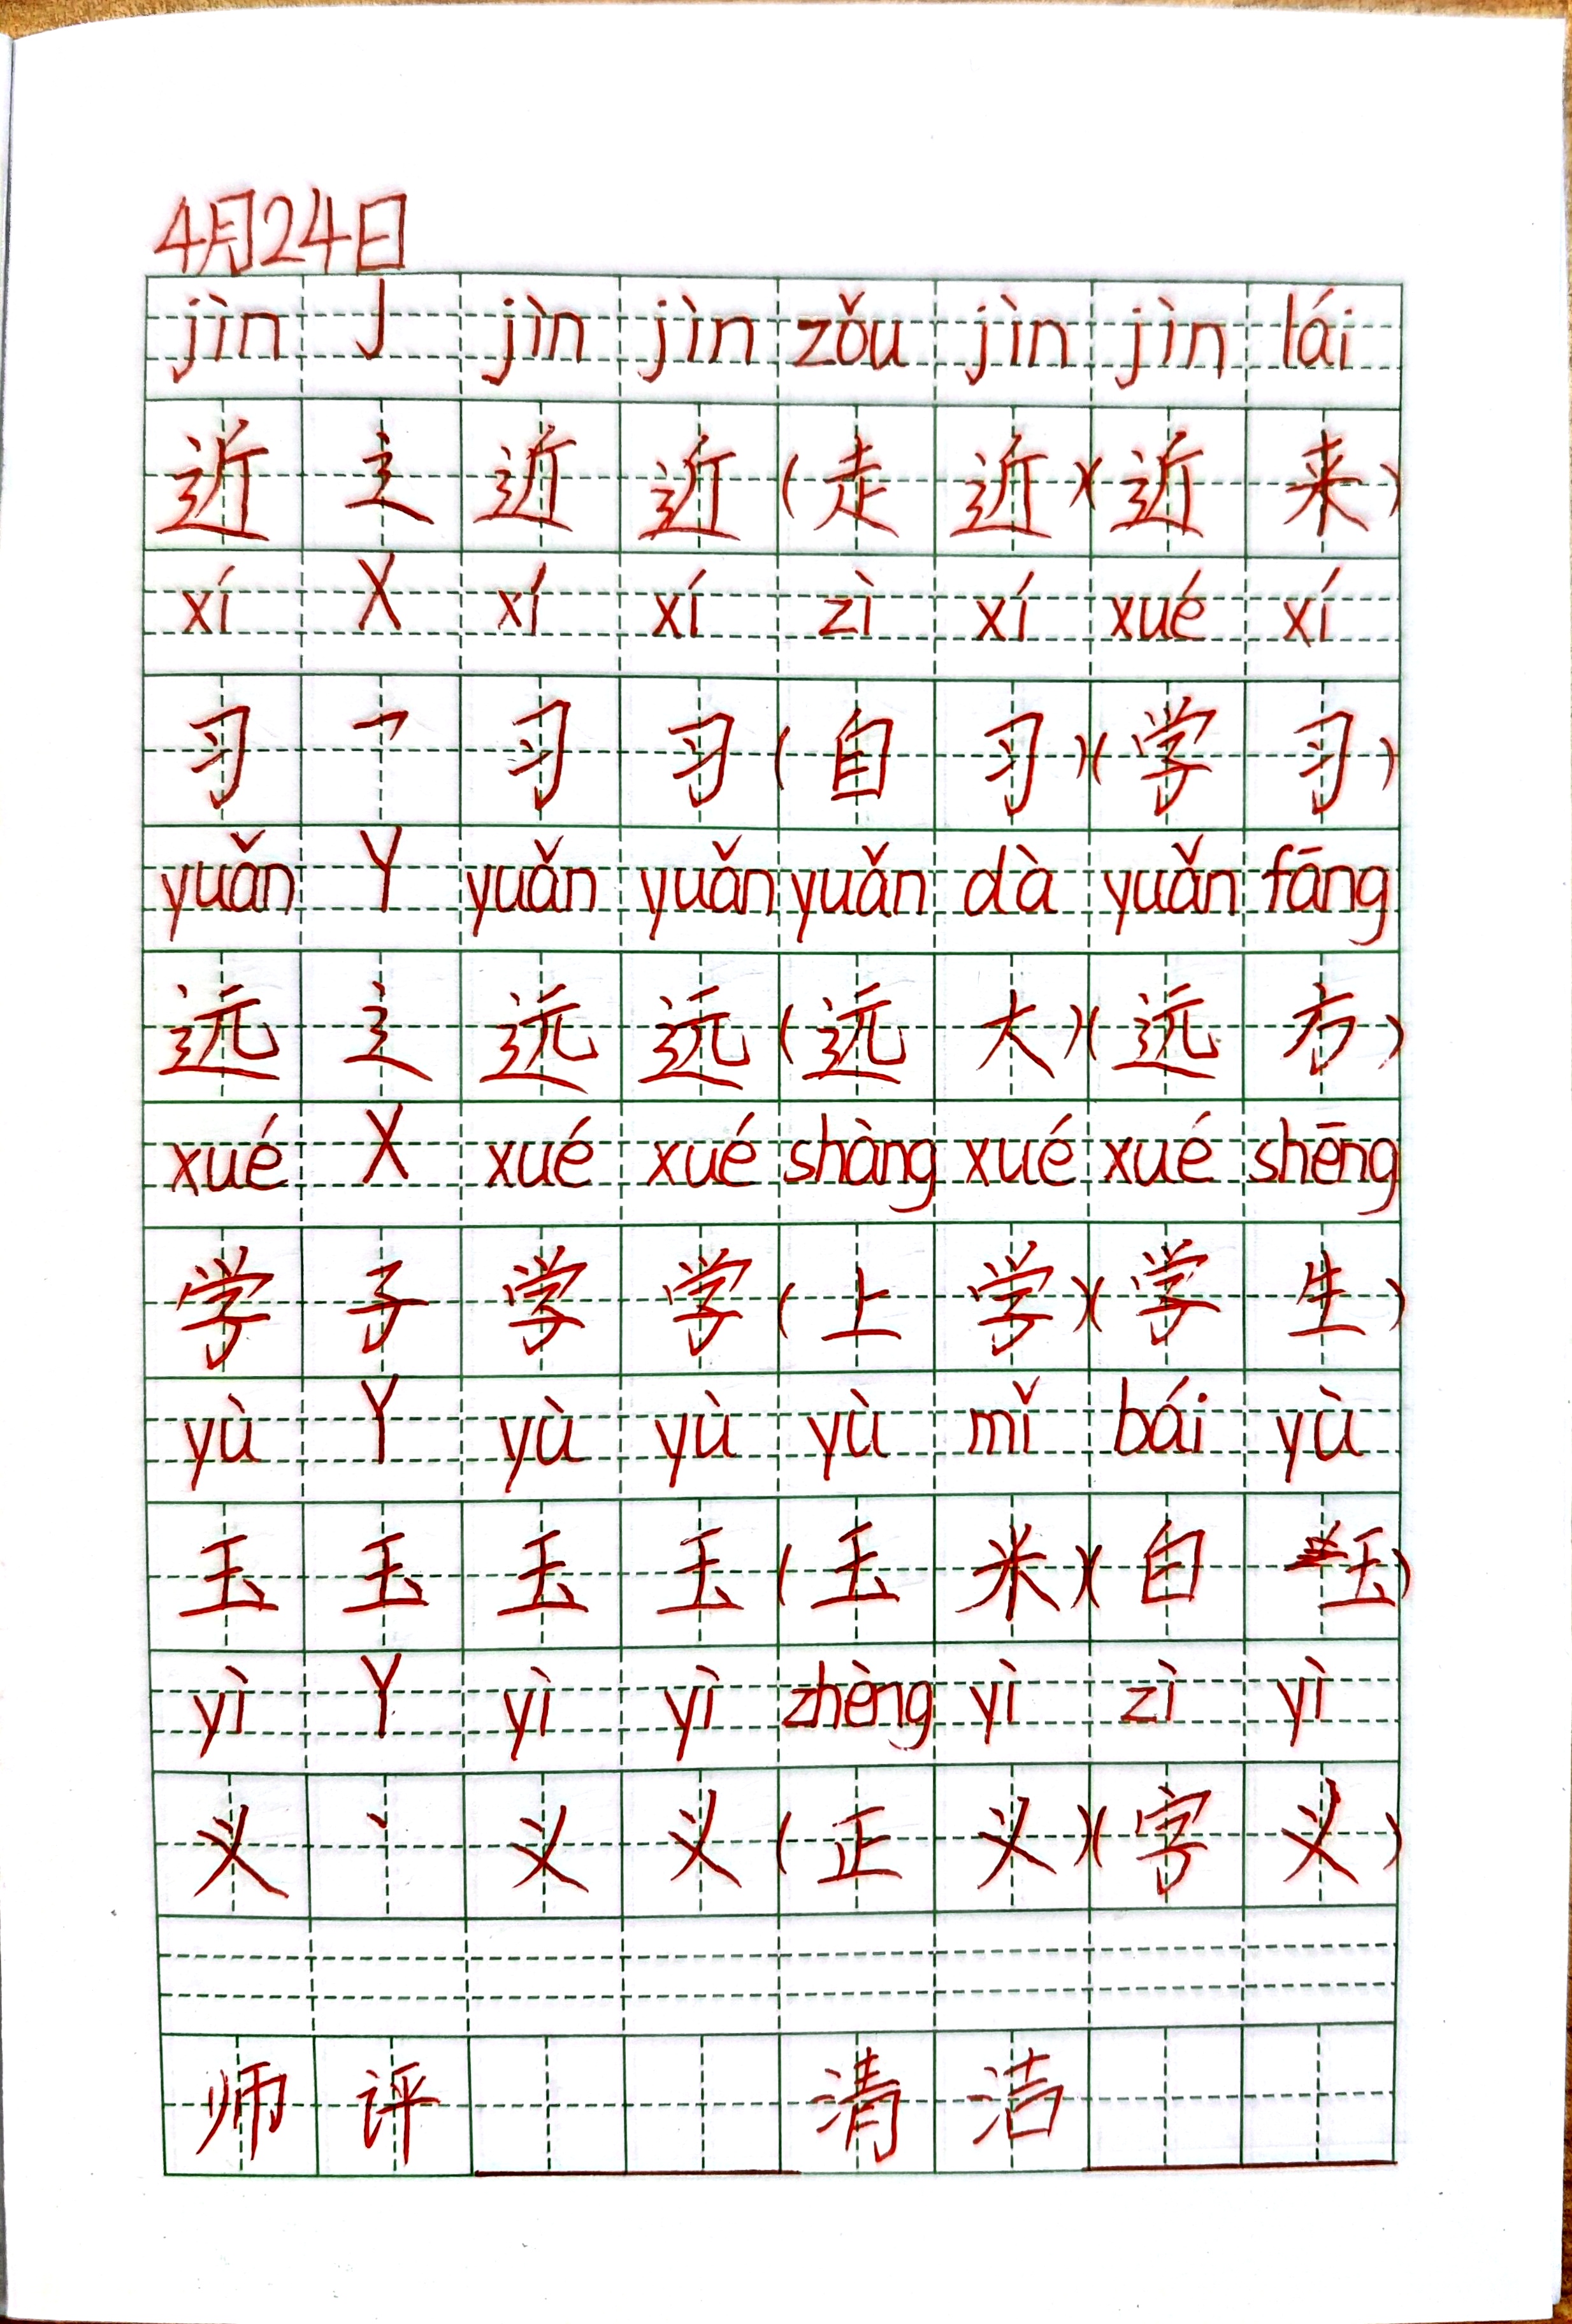 4月24日
jìn J jìn jìn zǒu jìn jìn lái
近 辶 近 近 (走 近)(近 来)
xí X xí xí zì xí xué xí
习 乛 习 习 (自 习)(学 习)
yuǎn Y yuǎn yuǎn yuǎn dà yuǎn fāng
远 辶 远 远 (远 大)(远 方)
xué X xué xué shàng xué xué shēng
学 子 学 学 (上 学)(学 生)
yù Y yù yù yù mǐ bái yù
玉 玉 玉 玉 (玉 米)(白 玉)
yì Y yì yì zhèng yì zì yì
义 丶 义 义 (正 义)(字 义)
师 评 清 洁